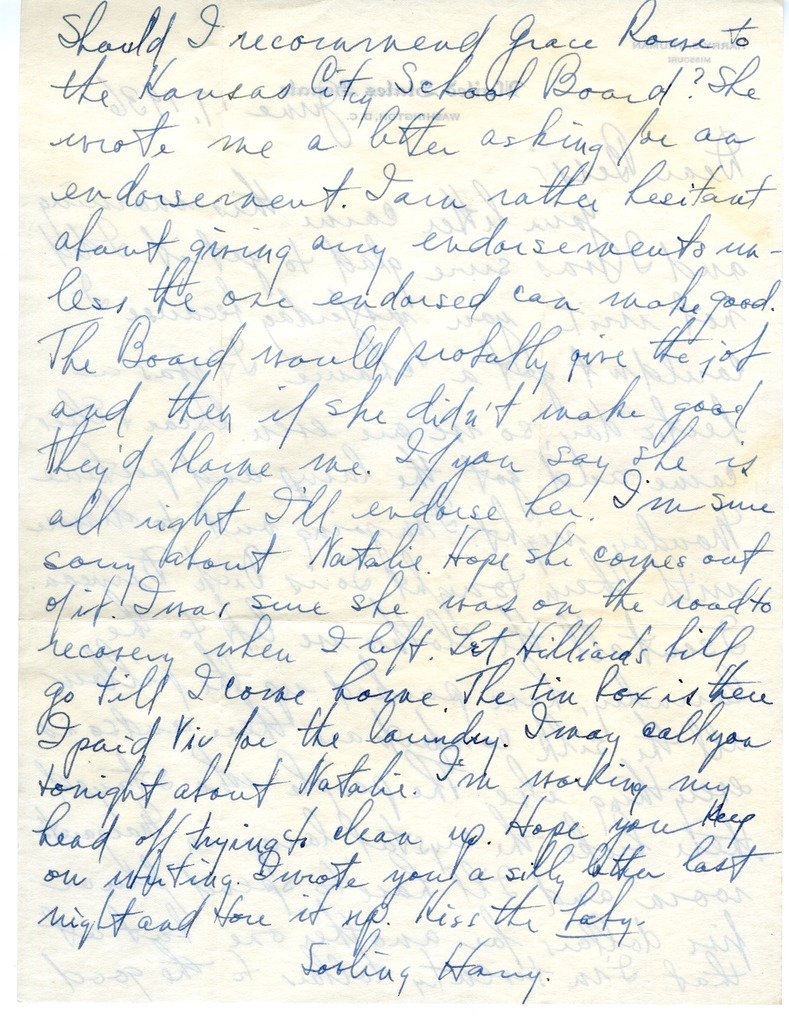 Should I recommend Grace Rowe to
the Kansas City School Board? She
wrote me a letter asking for an
endorsement. I am rather hesitant
about giving any endorsements un-
less the one endorsed can make good.
The Board would probably give the job
and then if she didn't make good
they'd blame me. If you say she is
all right I'll endorse her. I'm sure
sorry about Natalie. Hope she comes out
of it. I was sure she was on the road to
recovery when I left. Let Hilliards bill
go till I come home. The tin box is there
I paid Viv for the laundry. I may call you
tonight about Natalie. I'm working my
head off trying to clean up. Hope you keep
on writing. I wrote you a silly letter last
night and tore it up. Kiss the baby.
Harry.